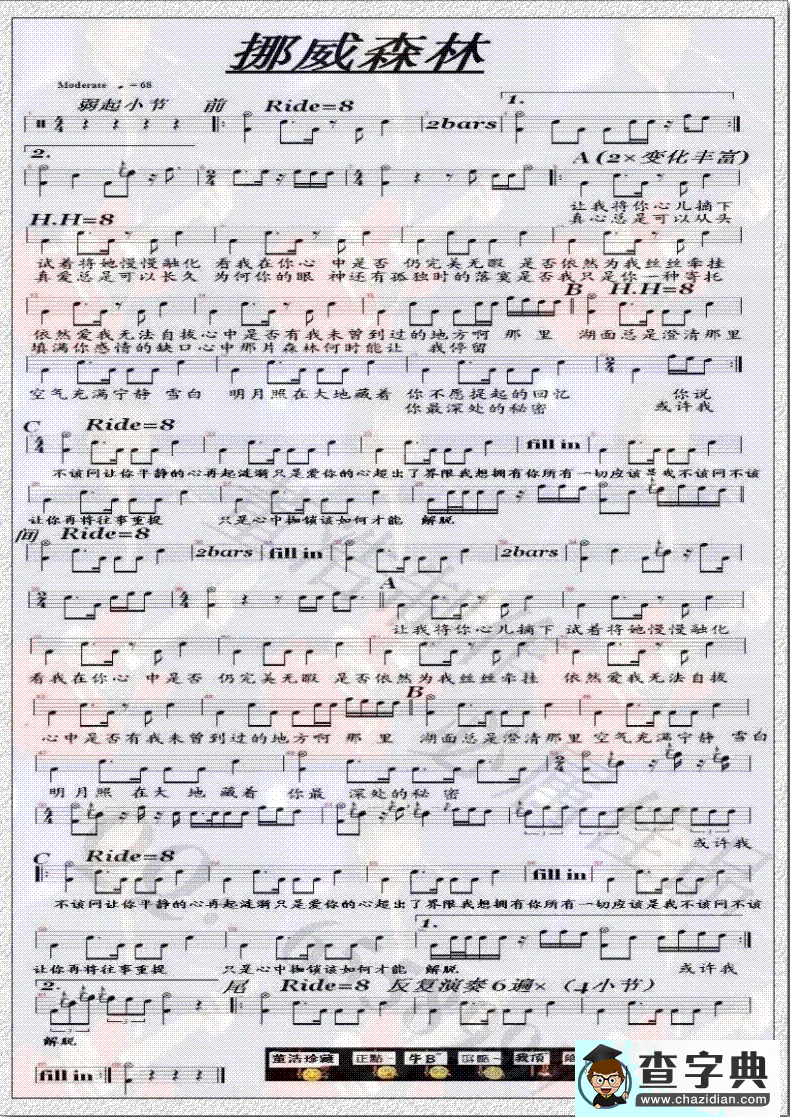 挪威森林
Moderate ♩=68
弱起小节 前 Ride=8
1.
2bars
2.
A (2×变化丰富)
让我将你心儿摘下
H.H=8 真心总是可以从头
试着将她慢慢融化 看我在你心 中是否 仍完美无暇 是否依然为我丝丝牵挂
真爱总是可以长久 为何你的眼 神还有孤独时的落寞是否我只是你一种寄托
B H.H=8
依然爱我无法自拔心中是否有我未曾到过的地方啊 那 里 湖面总是澄清那里
填满你感情的缺口心中那片森林何时能让 我停留
空气充满宁静 雪白 明月照在大地藏着 你不愿提起的回忆 你说
你最深处的秘密 或许我
C Ride=8
fill in
不该问让你平静的心再起涟漪只是爱你的心超出了界限我想拥有你所有一切应该是我不该问不该
让你再将往事重提 只是心中枷锁该如何才能 解脱
间 Ride=8
2bars fill in 2bars
A
让我将你心儿摘下 试着将她慢慢融化
看我在你心 中是否 仍完美无暇 是否依然为我丝丝牵挂 依然爱我无法自拔
B
心中是否有我未曾到过的地方啊 那 里 湖面总是澄清那里 空气充满宁静 雪白
明月照 在大 地 藏着 你最 深处的秘 密
或许我
C Ride=8
fill in
不该问让你平静的心再起涟漪只是爱你的心超出了界限我想拥有你所有一切应该是我不该问不该
1.
让你再将往事重提 只是心中枷锁该如何才能 解脱 或许我
2. 尾 Ride=8 反复演奏6遍×（4小节）
解脱
fill in
董活珍藏 正點 牛B 我顶
查字典
www.chazidian.com